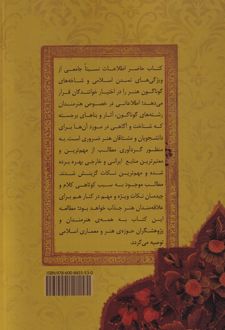 کتاب حاضر اطلاعات نسبتاً جامعی از
ویژگی‌های تمدن اسلامی و شاخه‌های
گوناگون هنر را در اختیار خوانندگان قرار
می‌دهد؛ اطلاعاتی در خصوص هنرمندان
رشته‌های گوناگون، آثار و بناهای برجسته
که شناخت و آگاهی در مورد آن‌ها برای
دانشجویان و مشتاقان هنر ضروری است. به
منظور گردآوری مطالب از مهم‌ترین و
معتبرترین منابع ایرانی و خارجی بهره برده
شده و مهم‌ترین نکات گزینش شدند.
مطالب موجود به سبب کوتاهی کلام و
چیدمان نکات ویژه و مهم در کنار هم برای
علاقه‌مندان هنر جذاب خواهد بود؛ مطالعه
این کتاب به همه‌ی هنرمندان و
پژوهشگران حوزه‌ی هنر و معماری اسلامی
توصیه می‌گردد.